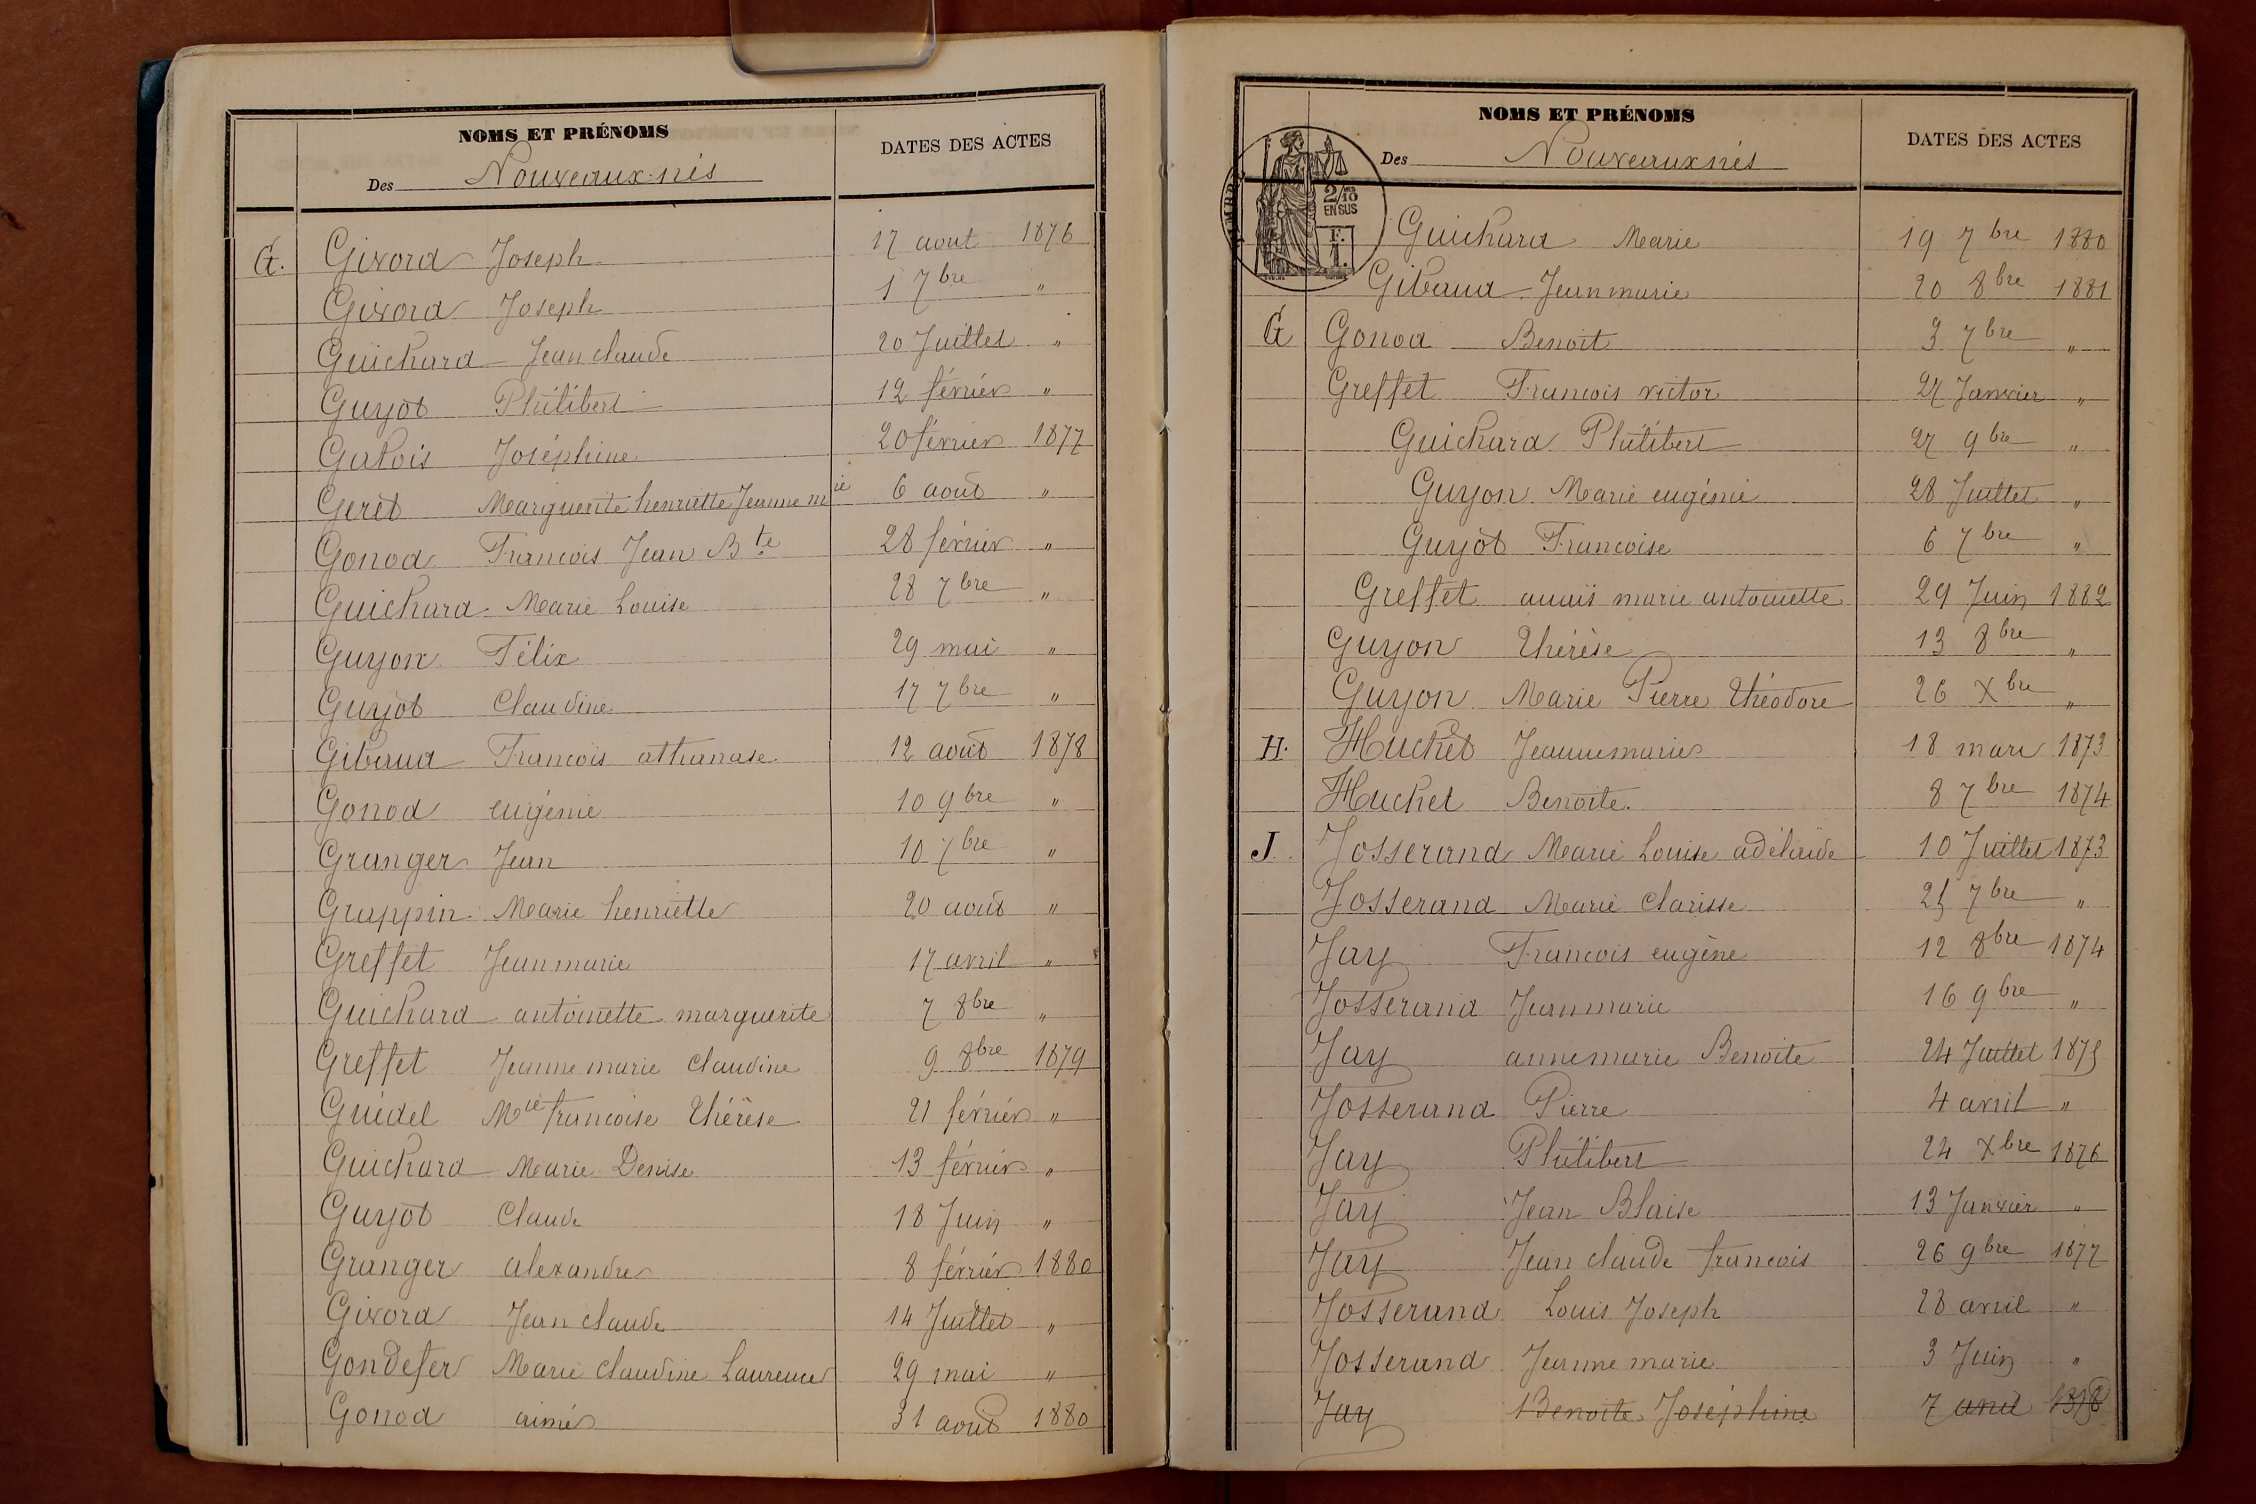 NOMS ET PRÉNOMS
Des Nouveaux-nés
DATES DES ACTES
G. Givord Joseph 17 aout 1876
Givord Joseph 1 7bre "
Guichard Jean claude 20 Juillet "
Guyot Philibert 12 février "
Gatois Joséphine 20 février 1877
Geret Marguerite henriette Jeanne mie 6 août "
Gonod Francois Jean Bte 28 février "
Guichard Marie Louise 28 7bre "
Guyon Félix 29 mai "
Guyot Claudine 17 7bre "
Gibaud Francois athanase 12 août 1878
Gonod eugénie 10 9bre "
Granger Jean 10 7bre "
Grappin Marie henriette 20 août "
Greffet Jean marie 17 avril "
Guichard antoinette marguerite 7 8bre "
Greffet Jeanne marie claudine 9 8bre 1879
Guédel Mie francoise Thérèse 21 février "
Guichard Marie Denise 13 février "
Guyot Claude 18 Juin "
Granger alexandre 8 février 1880
Givord Jean claude 14 Juillet "
Gondefer Marie claudine Laurence 29 mai "
Gonod aimé 31 août 1880
NOMS ET PRÉNOMS
Des Nouveaux nés
DATES DES ACTES
TIMBRE
2/10
EN SUS
F.
1.
Guichard Marie 19 7bre 1880
Gibaud Jean marie 20 8bre 1881
G Gonod Benoit 3 7bre "
Greffet Francois victor 27 Janvier "
Guichard Philibert 27 9bre "
Guyon Marie eugénie 28 Juillet "
Guyot Francoise 6 7bre "
Greffet anaïs marie antoinette 29 Juin 1882
Guyon Thérèse 13 8bre "
Guyon Marie Pierre Théodore 26 Xbre "
H. Huchet Jeanne marie 18 mars 1873
Huchet Benoite 8 7bre 1874
J. Josserand Marie Louise adélaïde 10 Juillet 1873
Josserand Marie Clarisse 25 7bre "
Jay Francois eugène 12 8bre 1874
Josserand Jean marie 16 9bre "
Jay anne marie Benoite 24 Juillet 1875
Josserand Pierre 4 avril "
Jay Philibert 24 Xbre 1876
Jay Jean Blaise 13 Janvier "
Jay Jean claude francois 26 9bre 1877
Josserand Louis Joseph 28 avril "
Josserand Jeanne marie 3 Juin "
Jay Benoite Joséphine 7 avril 1878